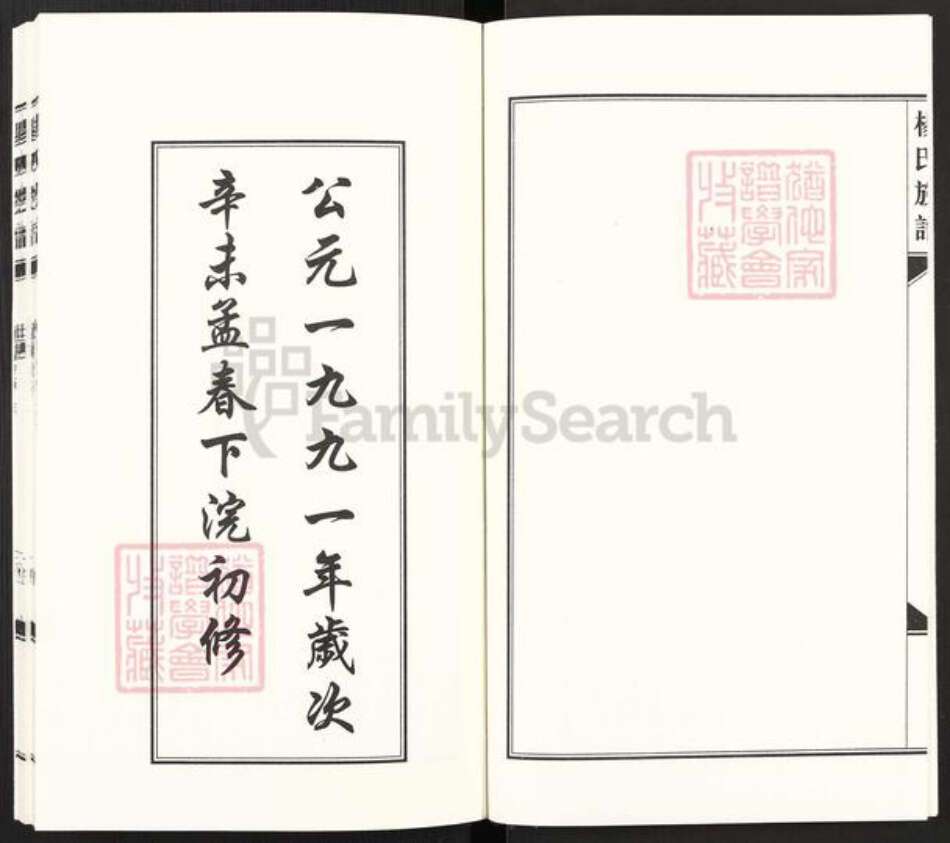 楊氏族譜
猶他家
譜學會
收藏
公元一九九一年歲次
辛未孟春下浣初修
猶他家
譜學會
收藏
FamilySearch